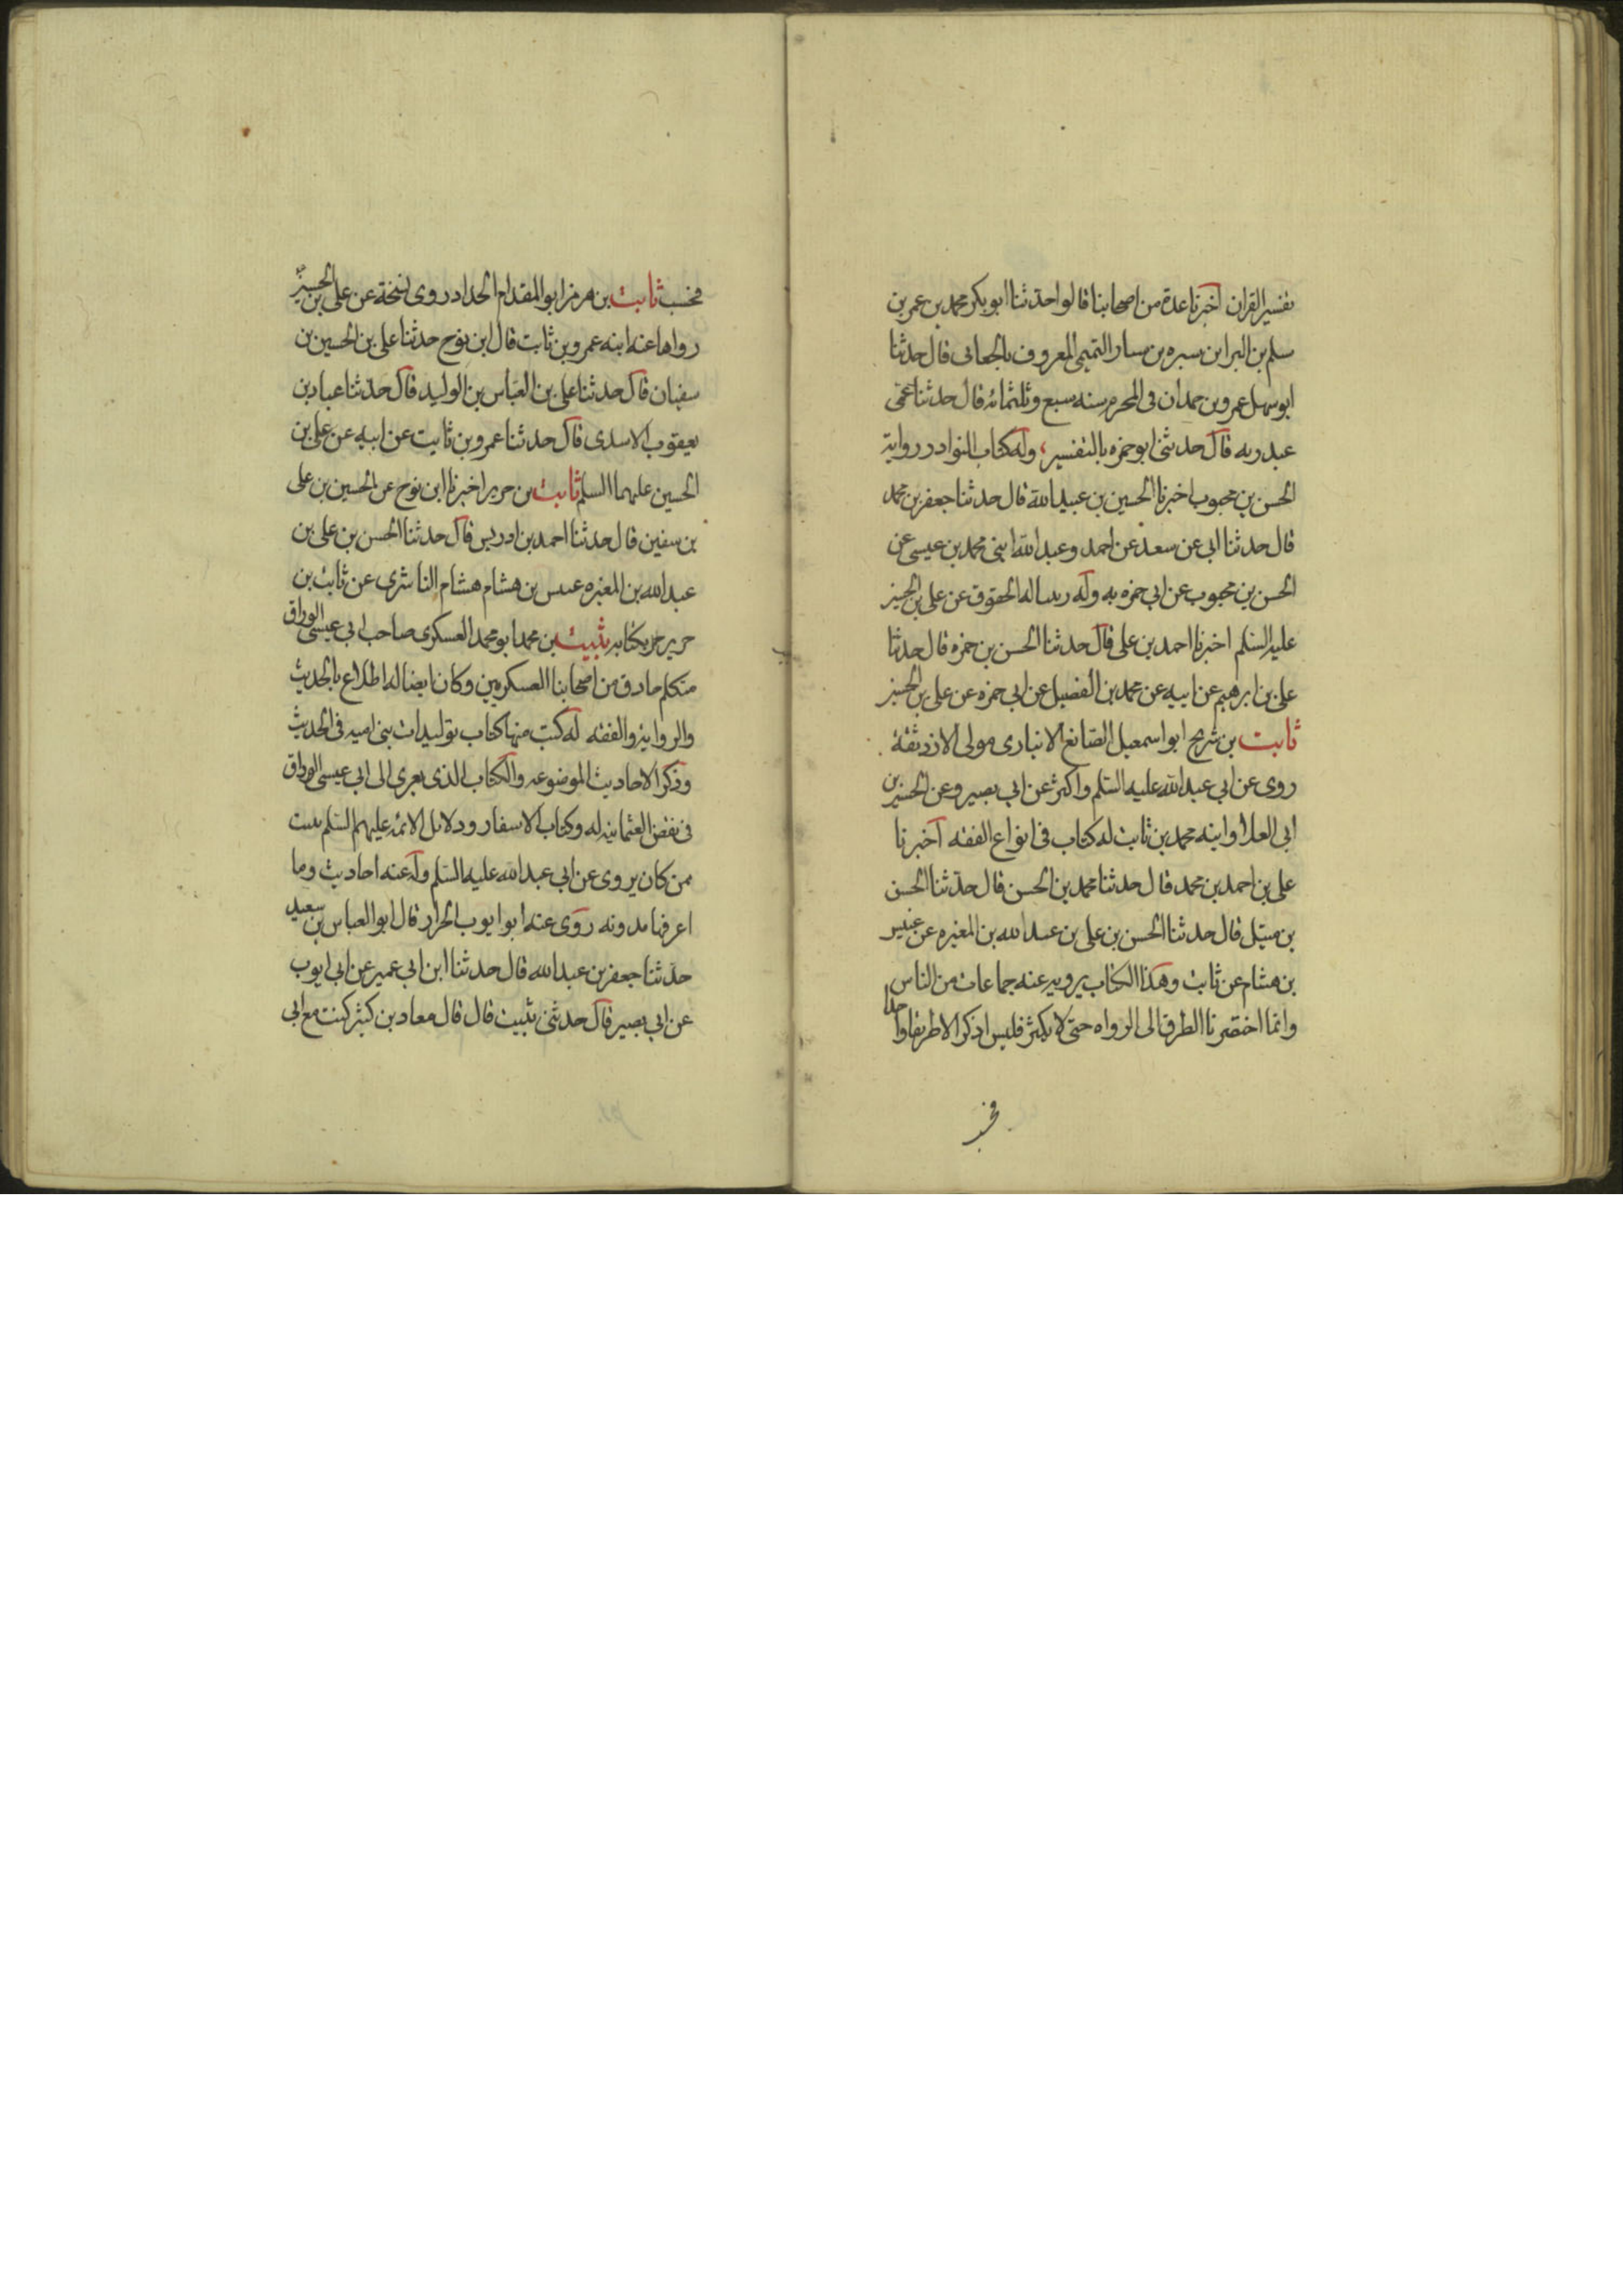 تفسير القران اخبرنا عدة من اصحابنا قالوا حدثنا ابو بكر محمد بن عمر بن
سلم بن البرا بن سبره بن سيار التميمى المعروف بالجعانى قال حدثنا
ابو سهل عمرو بن حمدان فى المحرم سنه سبع وثلثمائه قال حدثنا عمى
عبد ربه قال حدثنى ابو حمزه بالتفسير، وله كتاب النوادر رواية
الحسن بن محبوب اخبرنا الحسين بن عبيد الله قال حدثنا جعفر بن محمد
قال حدثنا ابى عن سعد عن احمد وعبد الله ابنى محمد بن عيسى عن
الحسن بن محبوب عن ابى حمزه به وله رساله الحقوق عن على بن الحسين
عليه السلم اخبرنا احمد بن على قال حدثنا الحسن بن حمزه قال حدثنا
على بن ابرهيم عن ابيه عن محمد بن الفضيل عن ابى حمزه عن على بن الحسين
ثابت بن شريح ابو اسمعيل الصائغ الانبارى مولى الازد ثقة
روى عن ابى عبد الله عليه السلم واكثر عن ابى بصير وعن الحسين بن
ابى العلا وابنه محمد بن ثابت له كتاب فى انواع الفقه اخبرنا
على بن احمد بن محمد قال حدثنا محمد بن الحسن قال حدثنا الحسن
بن متيل قال حدثنا الحسن بن على بن عبد الله بن المغيره عن عبيس
بن هشام عن ثابت وهذا الكتاب يرويه عنه جماعات من الناس
وانما اختصرنا الطرق الى الرواه حتى لا يكثر فليس اذكر الا طريقا واحدا
فحسب
فحسب ثابت بن هرمز ابو المقدام الحداد روى نسخة عن على بن الحسين
رواها عنه ابنه عمرو بن ثابت قال ابن نوح حدثنا على بن الحسين بن
سفيان قال حدثنا على بن العباس بن الوليد قال حدثنا عباد بن
يعقوب الاسدى قال حدثنا عمرو بن ثابت عن ابيه عن على بن
الحسين عليهما السلم ثابت بن جرير اخبرنا ابن نوح عن الحسين بن على
بن سفين قال حدثنا احمد بن ادريس قال حدثنا الحسن بن على بن
عبد الله بن المغيره عبيس بن هشام هشام الناشرى عن ثابت بن
جرير بكتابه ثبيت بن محمد ابو محمد العسكرى صاحب ابى عيسى الوراق
متكلم حاذق من اصحابنا العسكريين وكان ايضا له اطلاع بالحديث
والرواية والفقه له كتب منها كتاب توليدات بنى اميه فى الحديث
وذكر الاحاديث الموضوعه والكتاب الذى يعزى الى ابى عيسى الوراق
فى نقض العثمانيه له وكتاب الاسفار ودلائل الائمه عليهم السلم ثبيت
ممن كان يروى عن ابى عبد الله عليه السلم وله عنه احاديث وما
اعرفها مدونه روى عنه ابو ايوب الخزاز قال ابو العباس بن سعيد
حدثنا جعفر بن عبد الله قال حدثنا ابن ابى عمير عن ابى ايوب
عن ابى بصير قال حدثنى ثبيت قال قال معاذ بن كثير كنت مع ابى